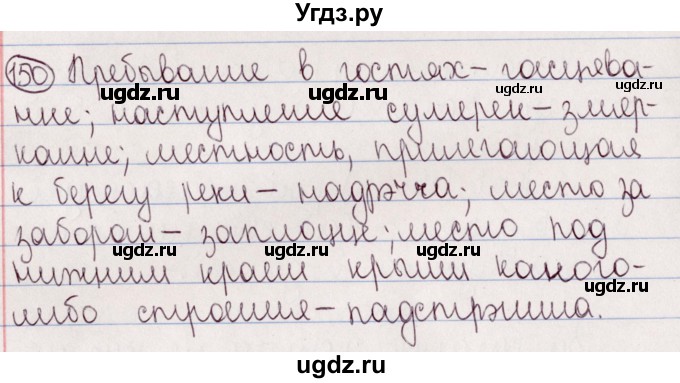 Угдз.ру
150 Пребывание в гостях - гасцева-
нне; наступление сумерек - змяр-
канне; местность, прилегающая
к берегу реки - надрэчча; место за
забором - заплоцце; место под
нижним краем крыши какого-
либо строения - падстрэшша.
ugdz.ru
ugdz.ru
ugdz.ru
ugdz.ru
ugdz.ru
ugdz.ru
ugdz.ru
ugdz.ru
ugdz.ru